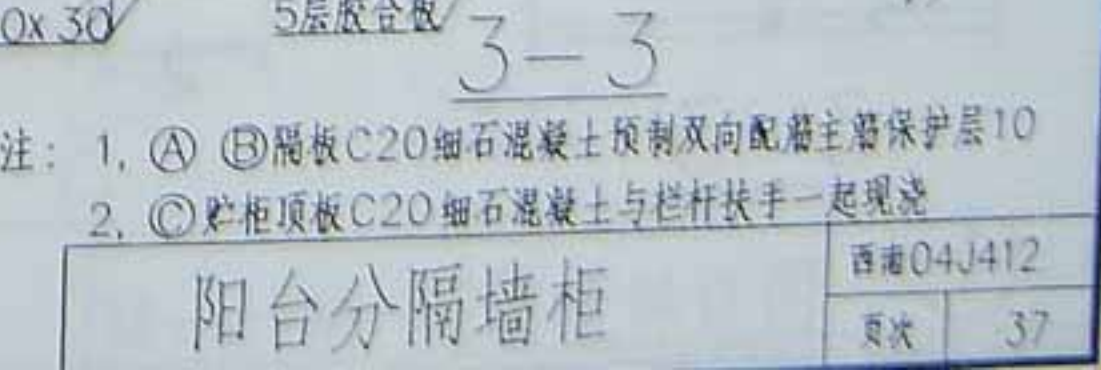 0x 30 5层胶合板
3-3
注: 1, Ⓐ Ⓑ隔板C20细石混凝土预制双向配筋主筋保护层10
2, Ⓒ贮柜顶板C20细石混凝土与栏杆扶手一起现浇
阳台分隔墙柜
西南04J412
页次 37